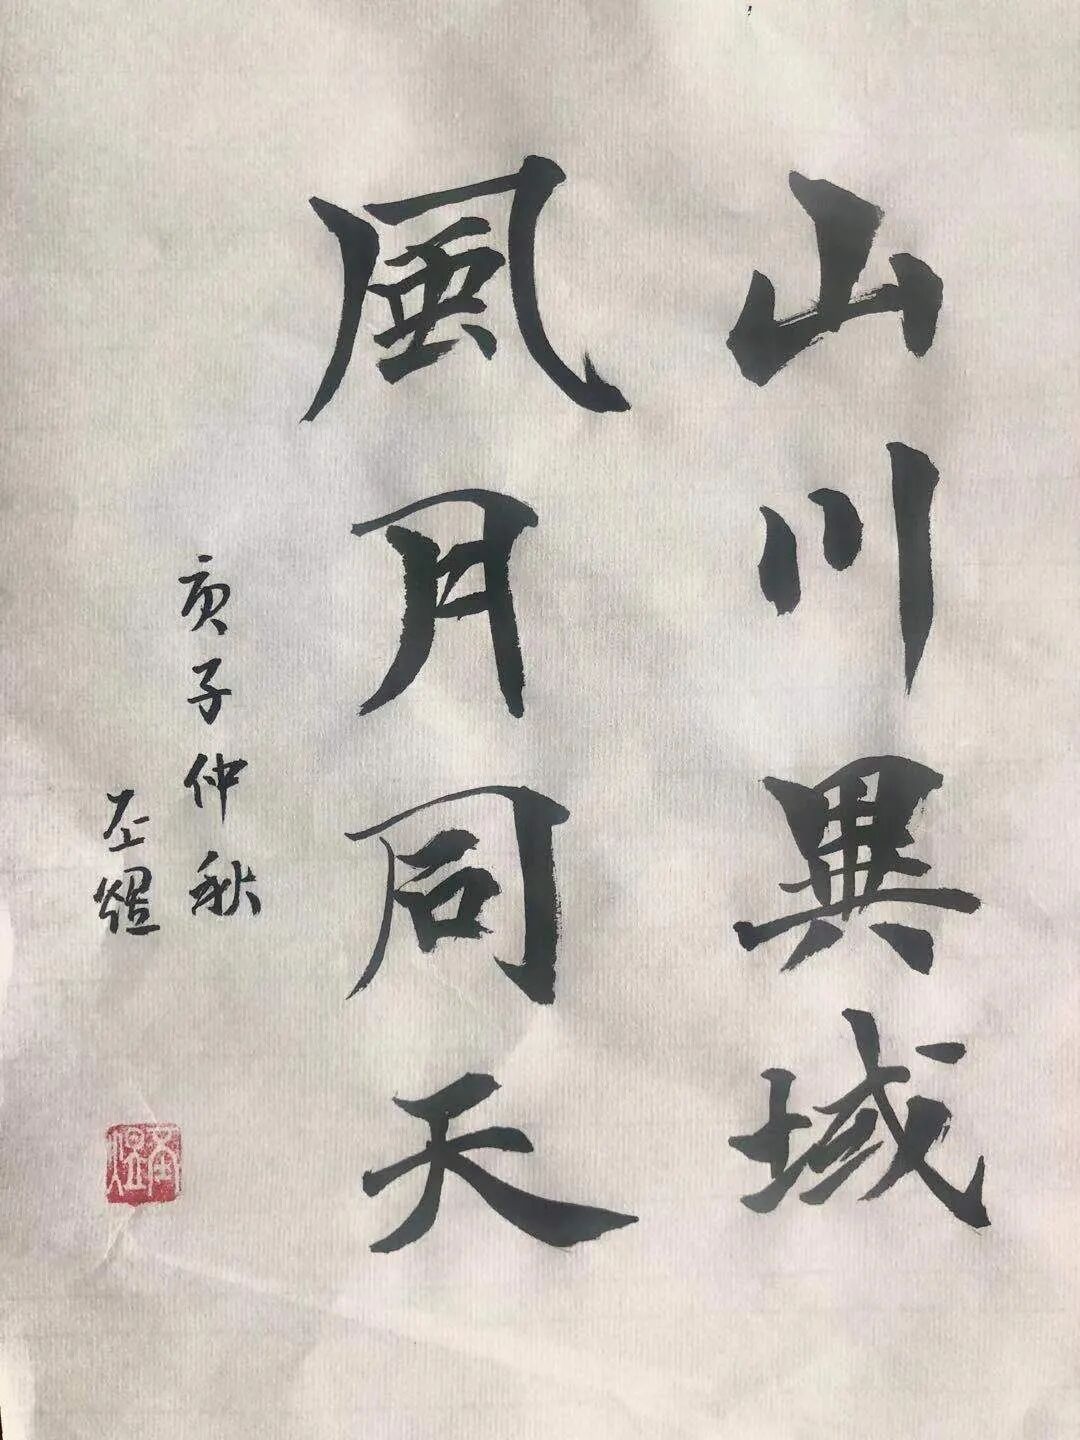 山川異域
風月同天
庚子仲秋